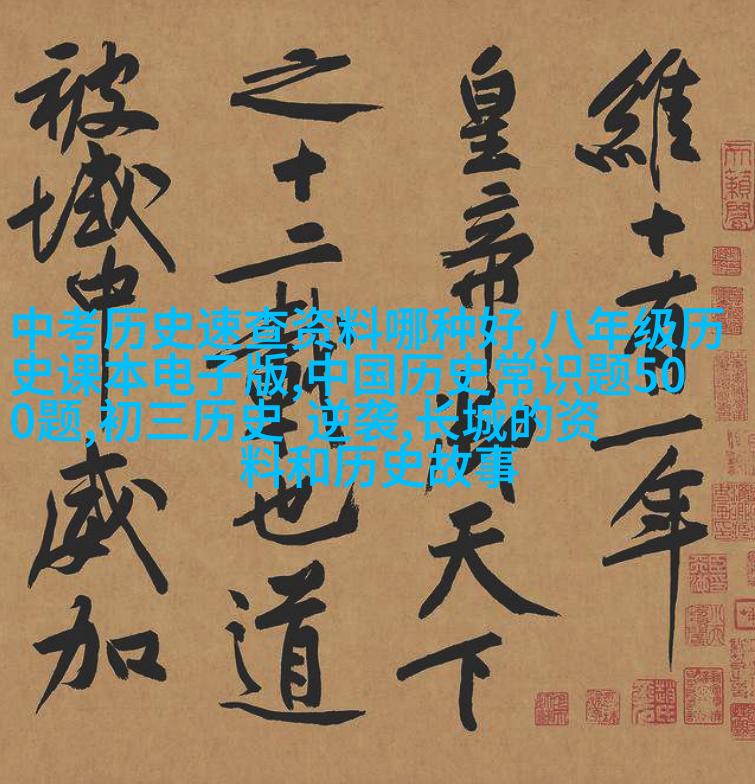 維十有一年
皇帝天下
之十二載也道
被域中威加
中考历史速查资料哪种好,八年级历
史课本电子版,中国历史常识题50
0题,初三历史 逆袭,长城的资
料和历史故事